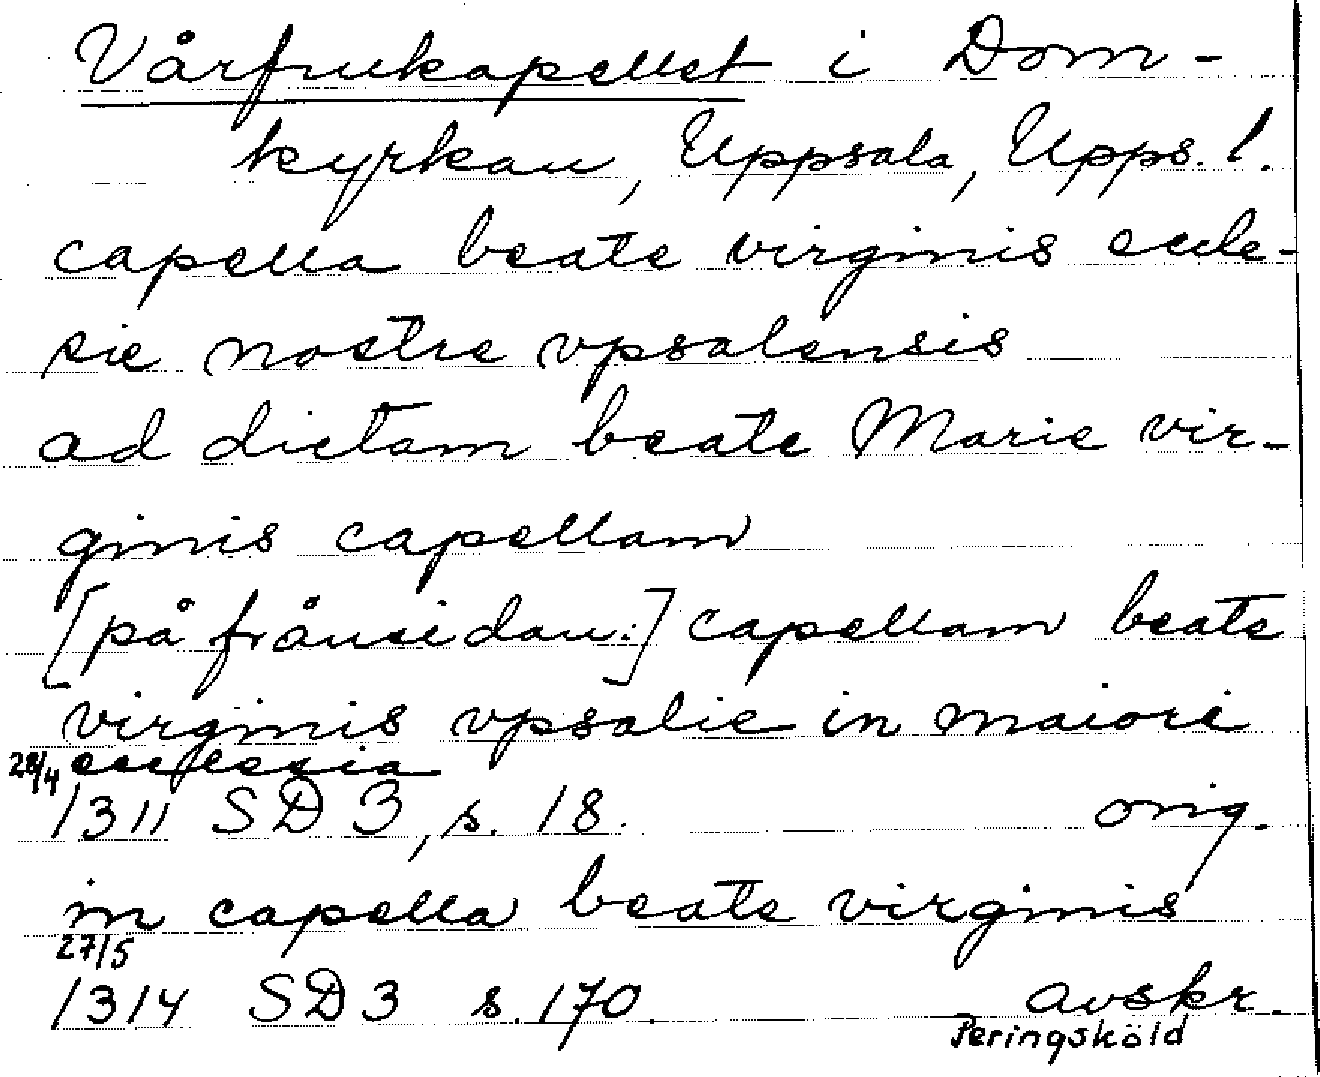 Vårfrukapellet i Dom-
kyrkan, Uppsala, Upps. l.
capella beate virginis eccle-
sie nostre vpsalensis
ad dictam beate Marie vir-
ginis capellam
[på frånsidan:] capellam beate
virginis vpsalie in maiori
ecclessia
28/4
1311 SD 3, s. 18. orig.
in capella beate virginis
27/5
1314 SD 3 s. 170. avskr.
Peringsköld